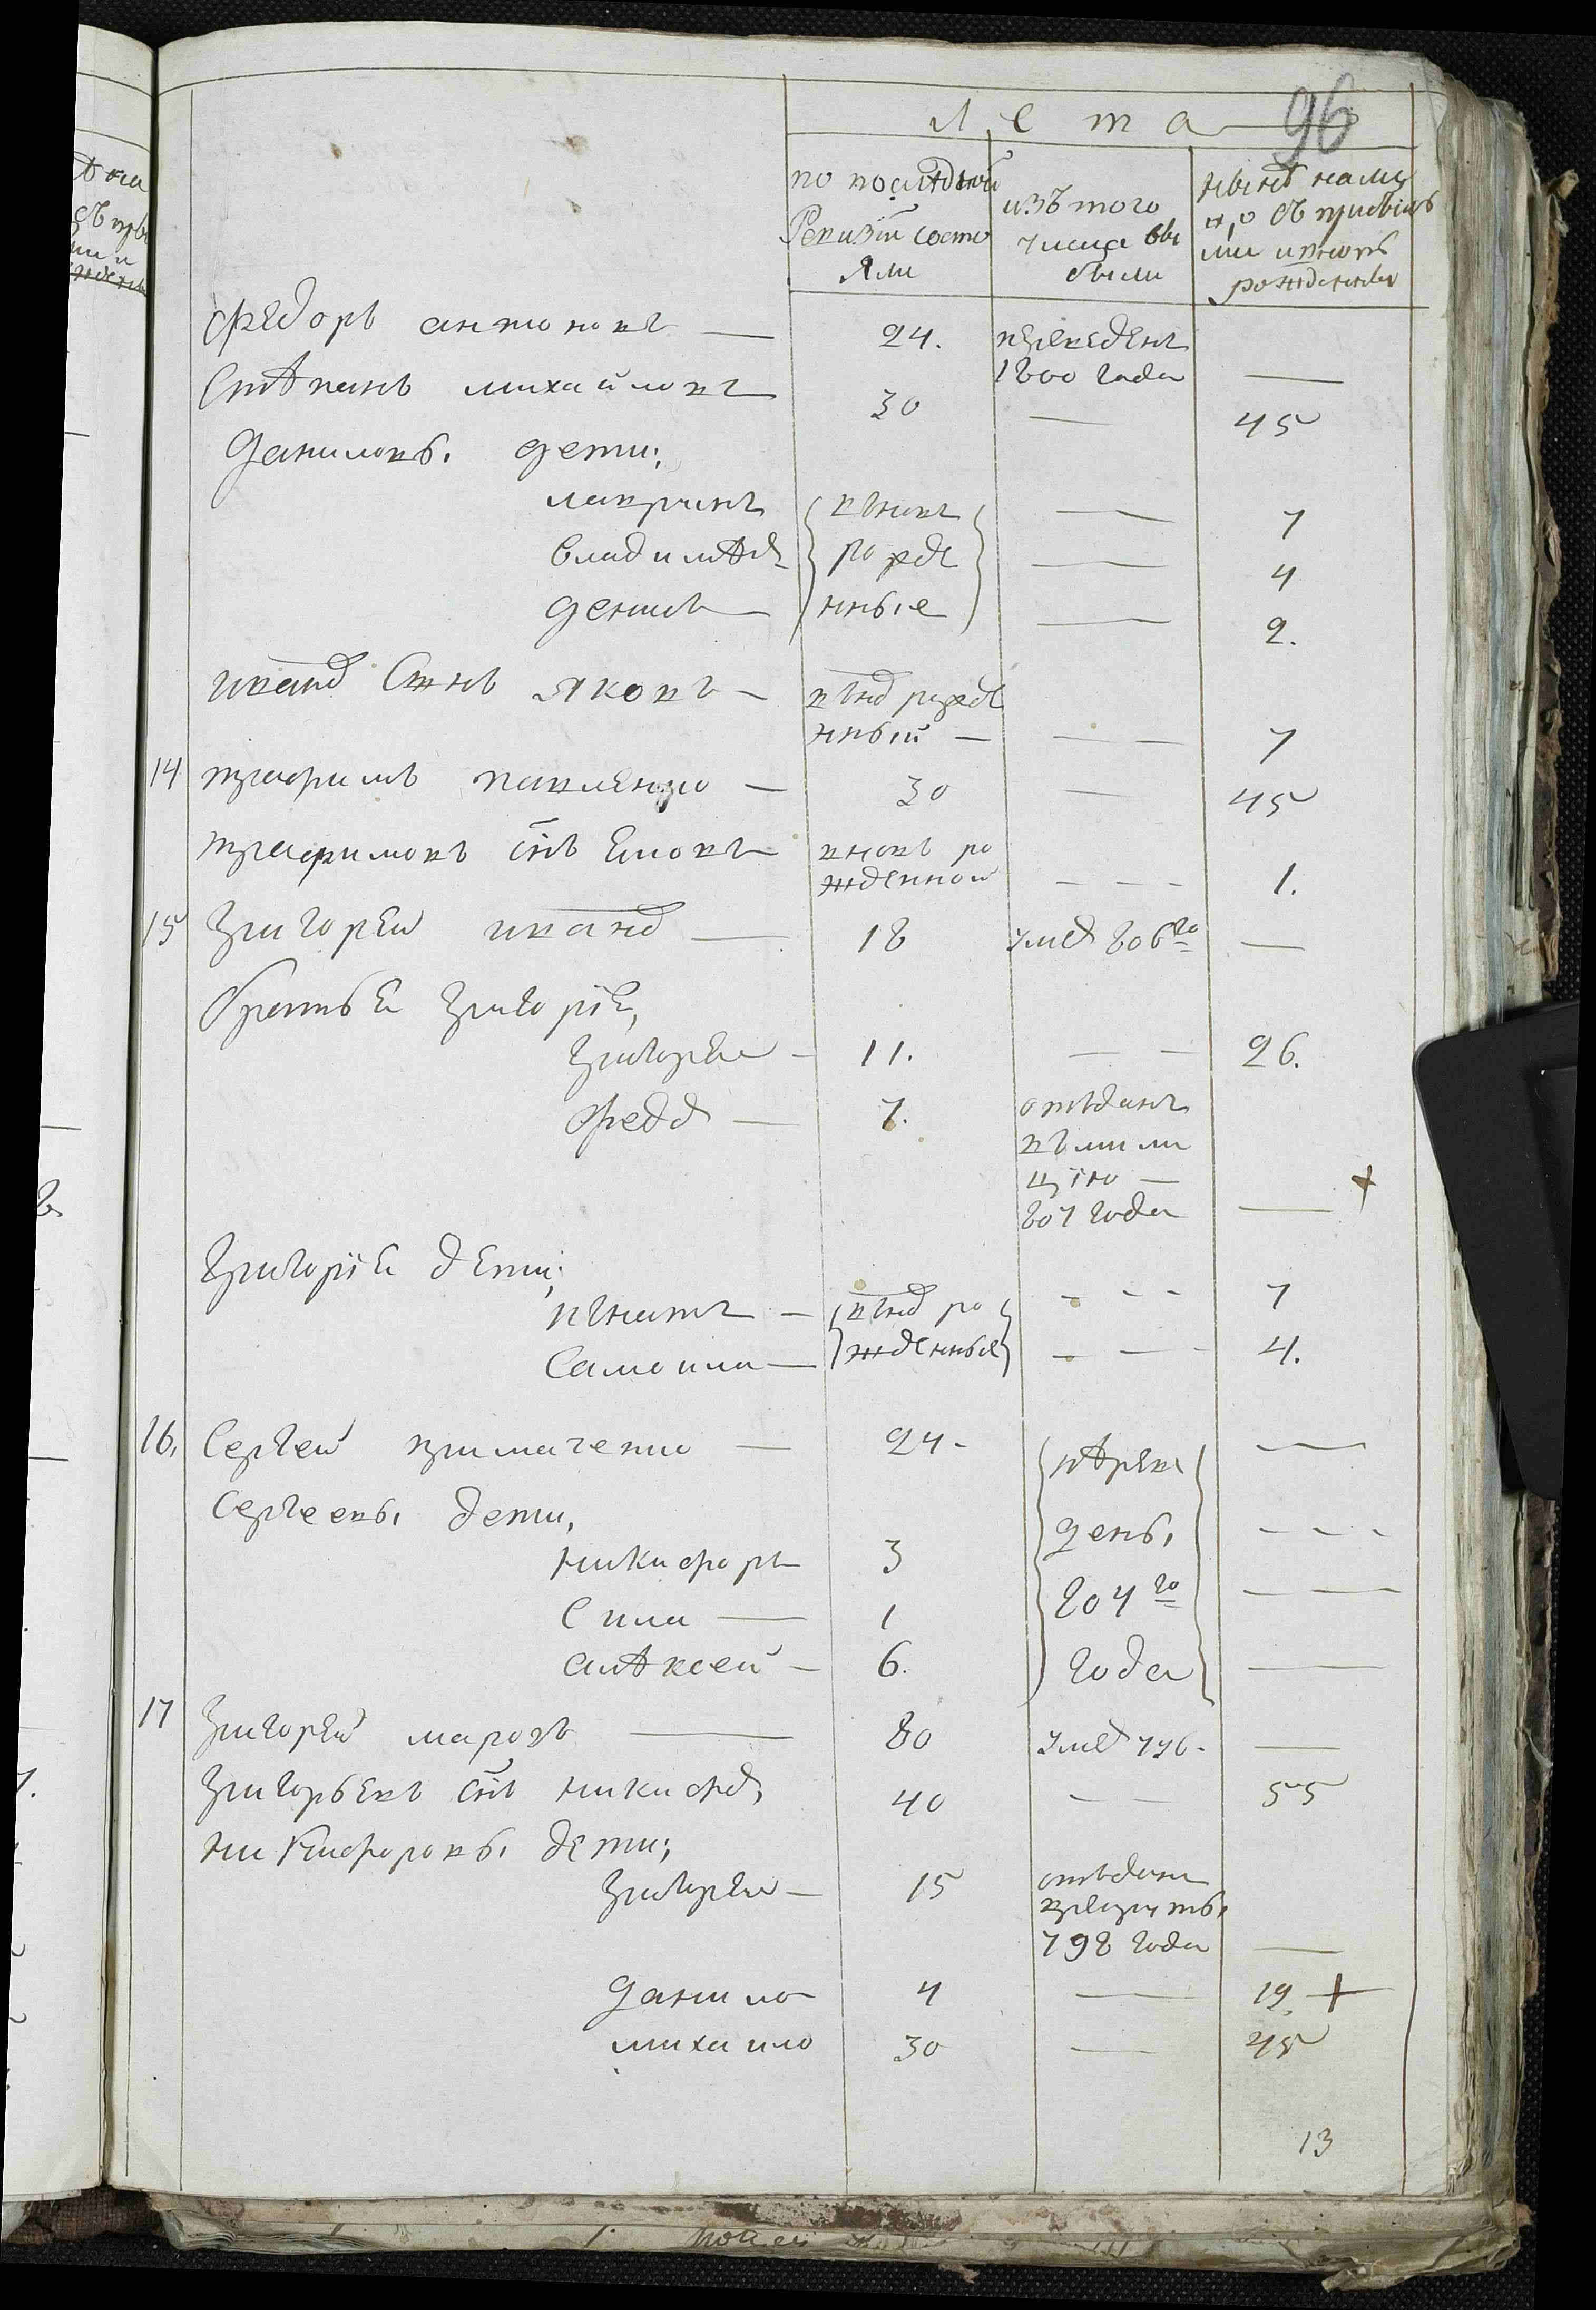 Лета 96
по последней Ревизiи состояли
изъ того числа выбыли
ныне налицо съ прибылыми и вновь рожденными
Федоръ антоновъ — 24. переведенъ 1800 года —
Степанъ михайловъ 30 — 45
Даниловы дети;
лавринъ вновь — 7
владимер рожде — 4
денисъ — нные — 2.
иванов Сынъ яковъ — вънов рожденный — — 7
14 трафимъ павленко — 30 — 45
трафимовъ снъ Емовъ вновь рожденной — — — 1.
15 Григорей иванов — 18 умер 806го —
братья Григорiя,
Григорей — 11. — — 26.
Федор — 7. отъданъ въ милицiю — 807 года — +
Григорiя дети;
игнатъ — вънов ро — — — 7
Самоила — жденные — — — 4.
16. Сергей примаченко — 24 - переве —
Сергеевы дети,
никифоръ 3 дены — — —
Сила — 1 804го — —
алексей — 6. года —
17 Григорей марозъ — 80 умер 796 - —
Григорьевъ снъ никифор, 40 — — 55
никифоровы дети;
Григорей — 15 отъданъ врекруты 798 года —
Данило 4 — 19. +
михаило 30 — 45
13